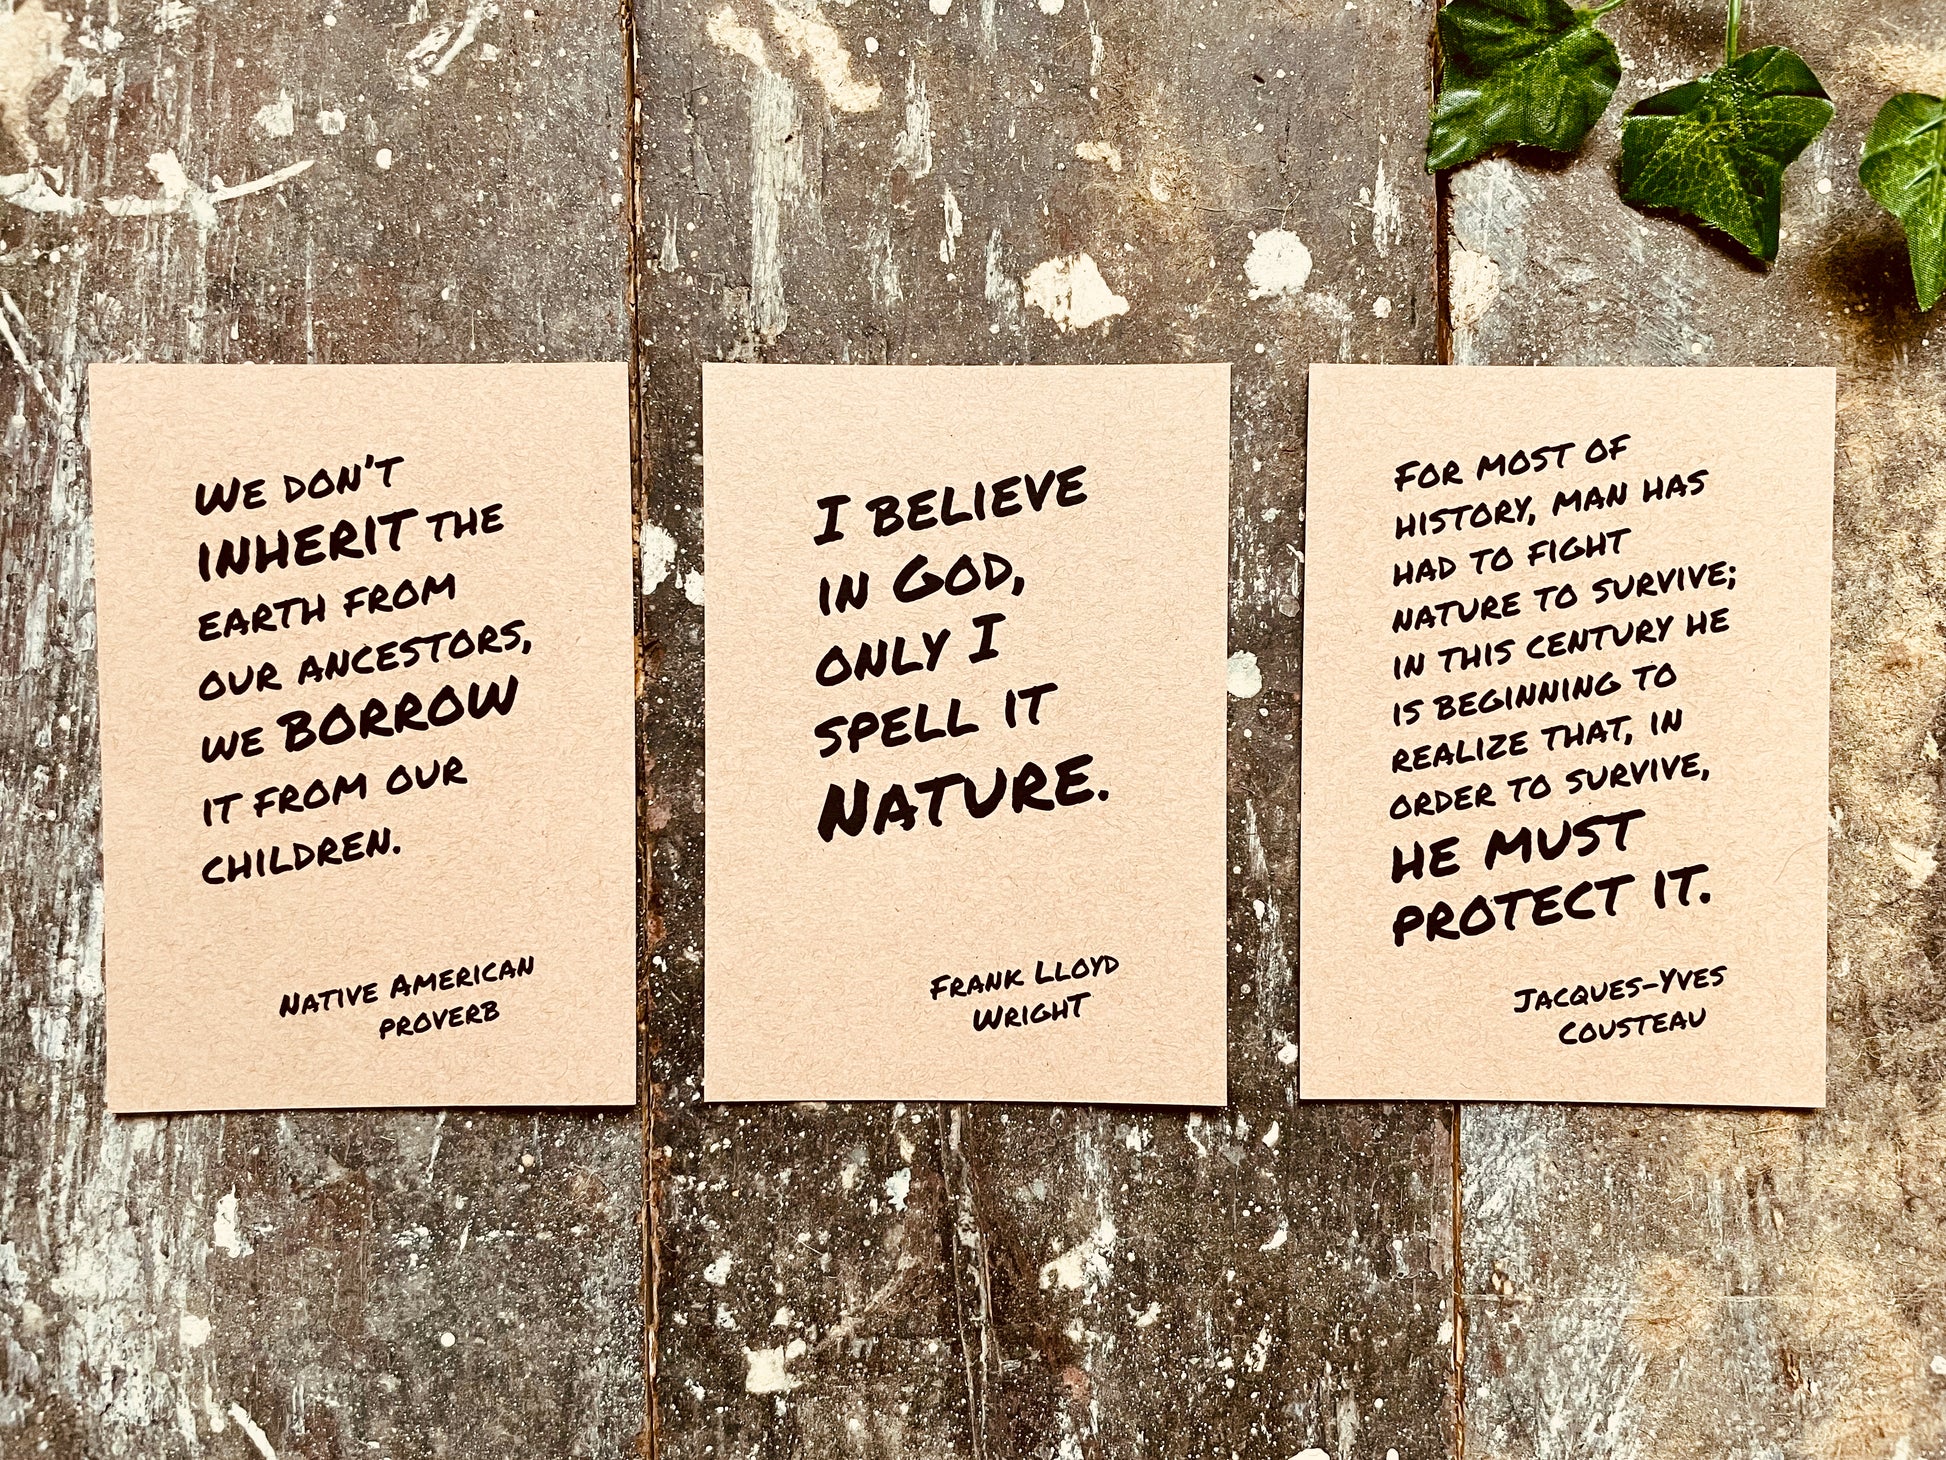 We don't
INHERIT the
earth from
our ancestors,
we BORROW
it from our
children.
Native American
proverb
I believe
in God,
only I
spell it
Nature.
Frank Lloyd
Wright
For most of
history, man has
had to fight
nature to survive;
in this century he
is beginning to
realize that, in
order to survive,
he must
protect it.
Jacques-Yves
Cousteau